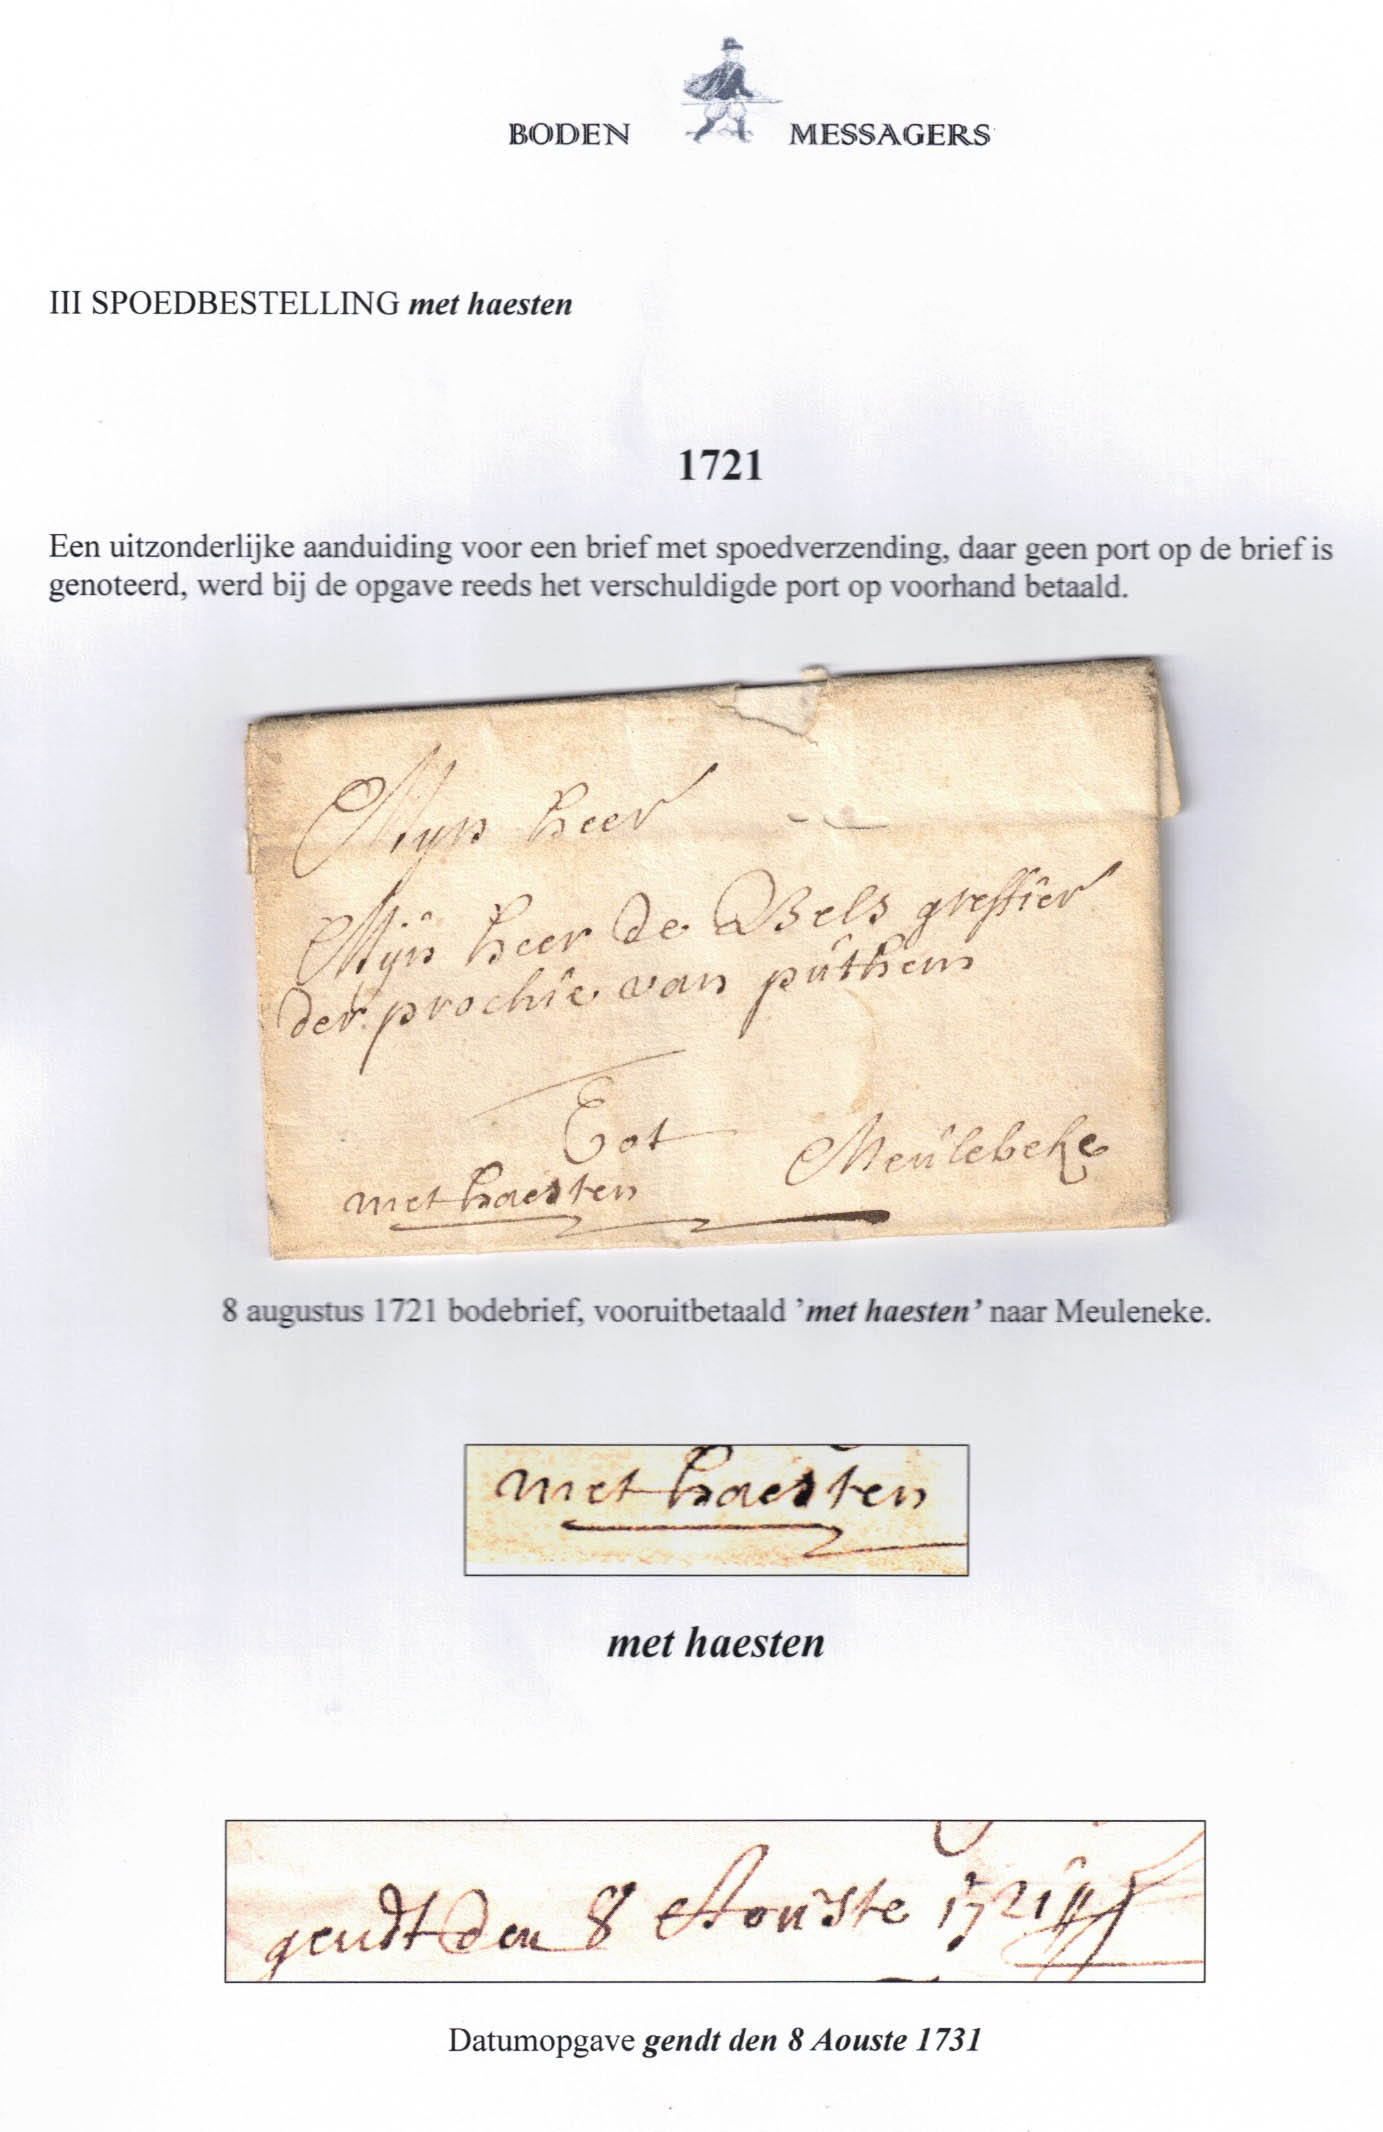 BODEN MESSAGERS
III SPOEDBESTELLING met haesten
1721
Een uitzonderlijke aanduiding voor een brief met spoedverzending, daar geen port op de brief is
genoteerd, werd bij de opgave reeds het verschuldigde port op voorhand betaald.
Mijn heer
Mijn heer de Bels greffier
der prochie van puthem
Tot Meulebeke
met haesten
8 augustus 1721 bodebrief, vooruitbetaald ’met haesten’ naar Meuleneke.
met haesten
met haesten
gendt den 8 Aouste 1721
Datumopgave gendt den 8 Aouste 1731